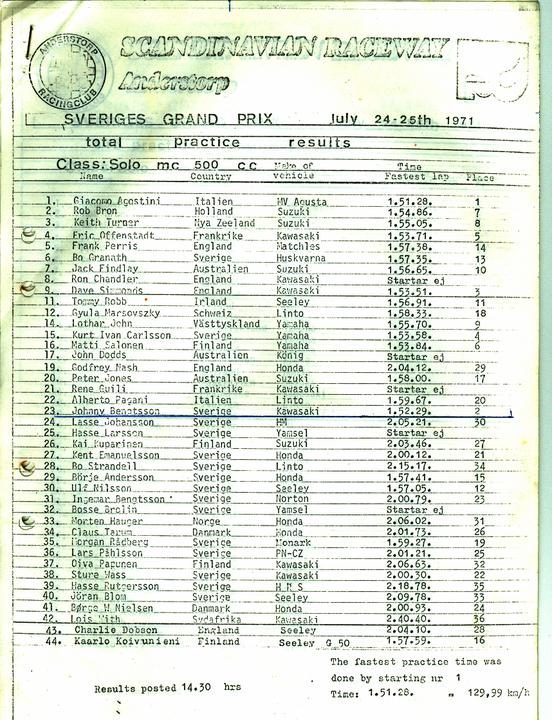 ANDERSTORP
RACINGCLUB
SCANDINAVIAN RACEWAY
Anderstorp
SVERIGES GRAND PRIX July 24-25th 1971
total practice results
Class: Solo mc 500 cc Make of Time
Name Country vehicle Fastest lap Place
1. Giacomo Agostini Italien MV Agusta 1.51.28. 1
2. Rob Bron Holland Suzuki 1.54.86. 7
3. Keith Turner Nya Zeeland Suzuki 1.55.05. 8
4. Eric Offenstadt Frankrike Kawasaki 1.53.71. 5
5. Frank Perris England Matchles 1.57.38. 14
6. Bo Granath Sverige Huskvarna 1.57.35. 13
7. Jack Findlay Australien Suzuki 1.56.65. 10
8. Ron Chandler England Kawasaki Startar ej
9. Dave Simmonds England Kawasaki 1.53.51. 3
11. Tommy Robb Irland Seeley 1.56.91. 11
12. Gyula Marsovszky Schweiz Linto 1.58.33. 18
14. Lothar John Västtyskland Yamaha 1.55.70. 9
15. Kurt Ivan Carlsson Sverige Yamaha 1.53.58. 4
16. Matti Salonen Finland Yamaha 1.53.84. 6
17. John Dodds Australien König Startar ej
19. Godfrey Nash England Honda 2.04.12. 29
20. Peter Jones Australien Suzuki 1.58.00. 17
21. Rene Guili Frankrike Kawasaki Startar ej
22. Alberto Pagani Italien Linto 1.59.67. 20
23. Johnny Bengtsson Sverige Kawasaki 1.52.29. 2
24. Lasse Johansson Sverige HM 2.05.21. 30
25. Hasse Larsson Sverige Yamsel Startar ej
26. Kai Kuparinen Finland Suzuki 2.03.46. 27
27. Kent Emanuelsson Sverige Honda 2.00.12. 21
28. Bo Strandell Sverige Linto 2.15.17. 34
29. Börje Andersson Sverige Honda 1.57.41. 15
30. Ulf Nilsson Sverige Seeley 1.57.05. 12
31. Ingemar Bengtsson Sverige Norton 2.00.79. 23
32. Bosse Brolin Sverige Yamsel Startar ej
33. Morten Hauger Norge Honda 2.06.02. 31
34. Claus Danmark Honda 2.01.73. 26
35. Morgan Rådberg Sverige Monark 1.59.27. 19
36. Lars Påhlsson Sverige PN-CZ 2.01.21. 25
37. Oiva Papunen Finland Kawasaki 2.06.63. 32
38. Sture Wass Sverige Kawasaki 2.00.30. 22
39. Hasse Rutgersson Sverige H M S 2.18.78. 35
40. Jöran Blom Sverige Seeley 2.09.78. 33
41. Børge W Nielsen Danmark Honda 2.00.93. 24
42. Sydafrika Kawasaki 2.40.40. 36
43. Charlie Dobson England Seeley 2.04.10. 28
44. Kaarlo Koivunieni Finland Seeley G 50 1.57.59. 16
The fastest practice time was
done by starting nr 1
Results posted 14.30 hrs
Time: 1.51.28. " 129,99 km/h